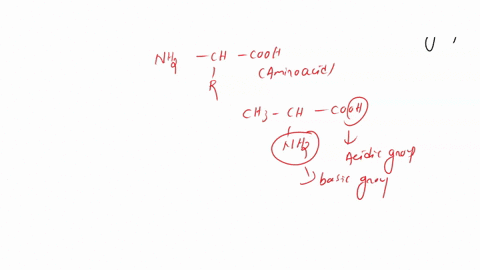 U '
NH2 - CH - COOH
(Aminoacid)
R
CH3 - CH - COOH
NH2
Acidic group
basic group